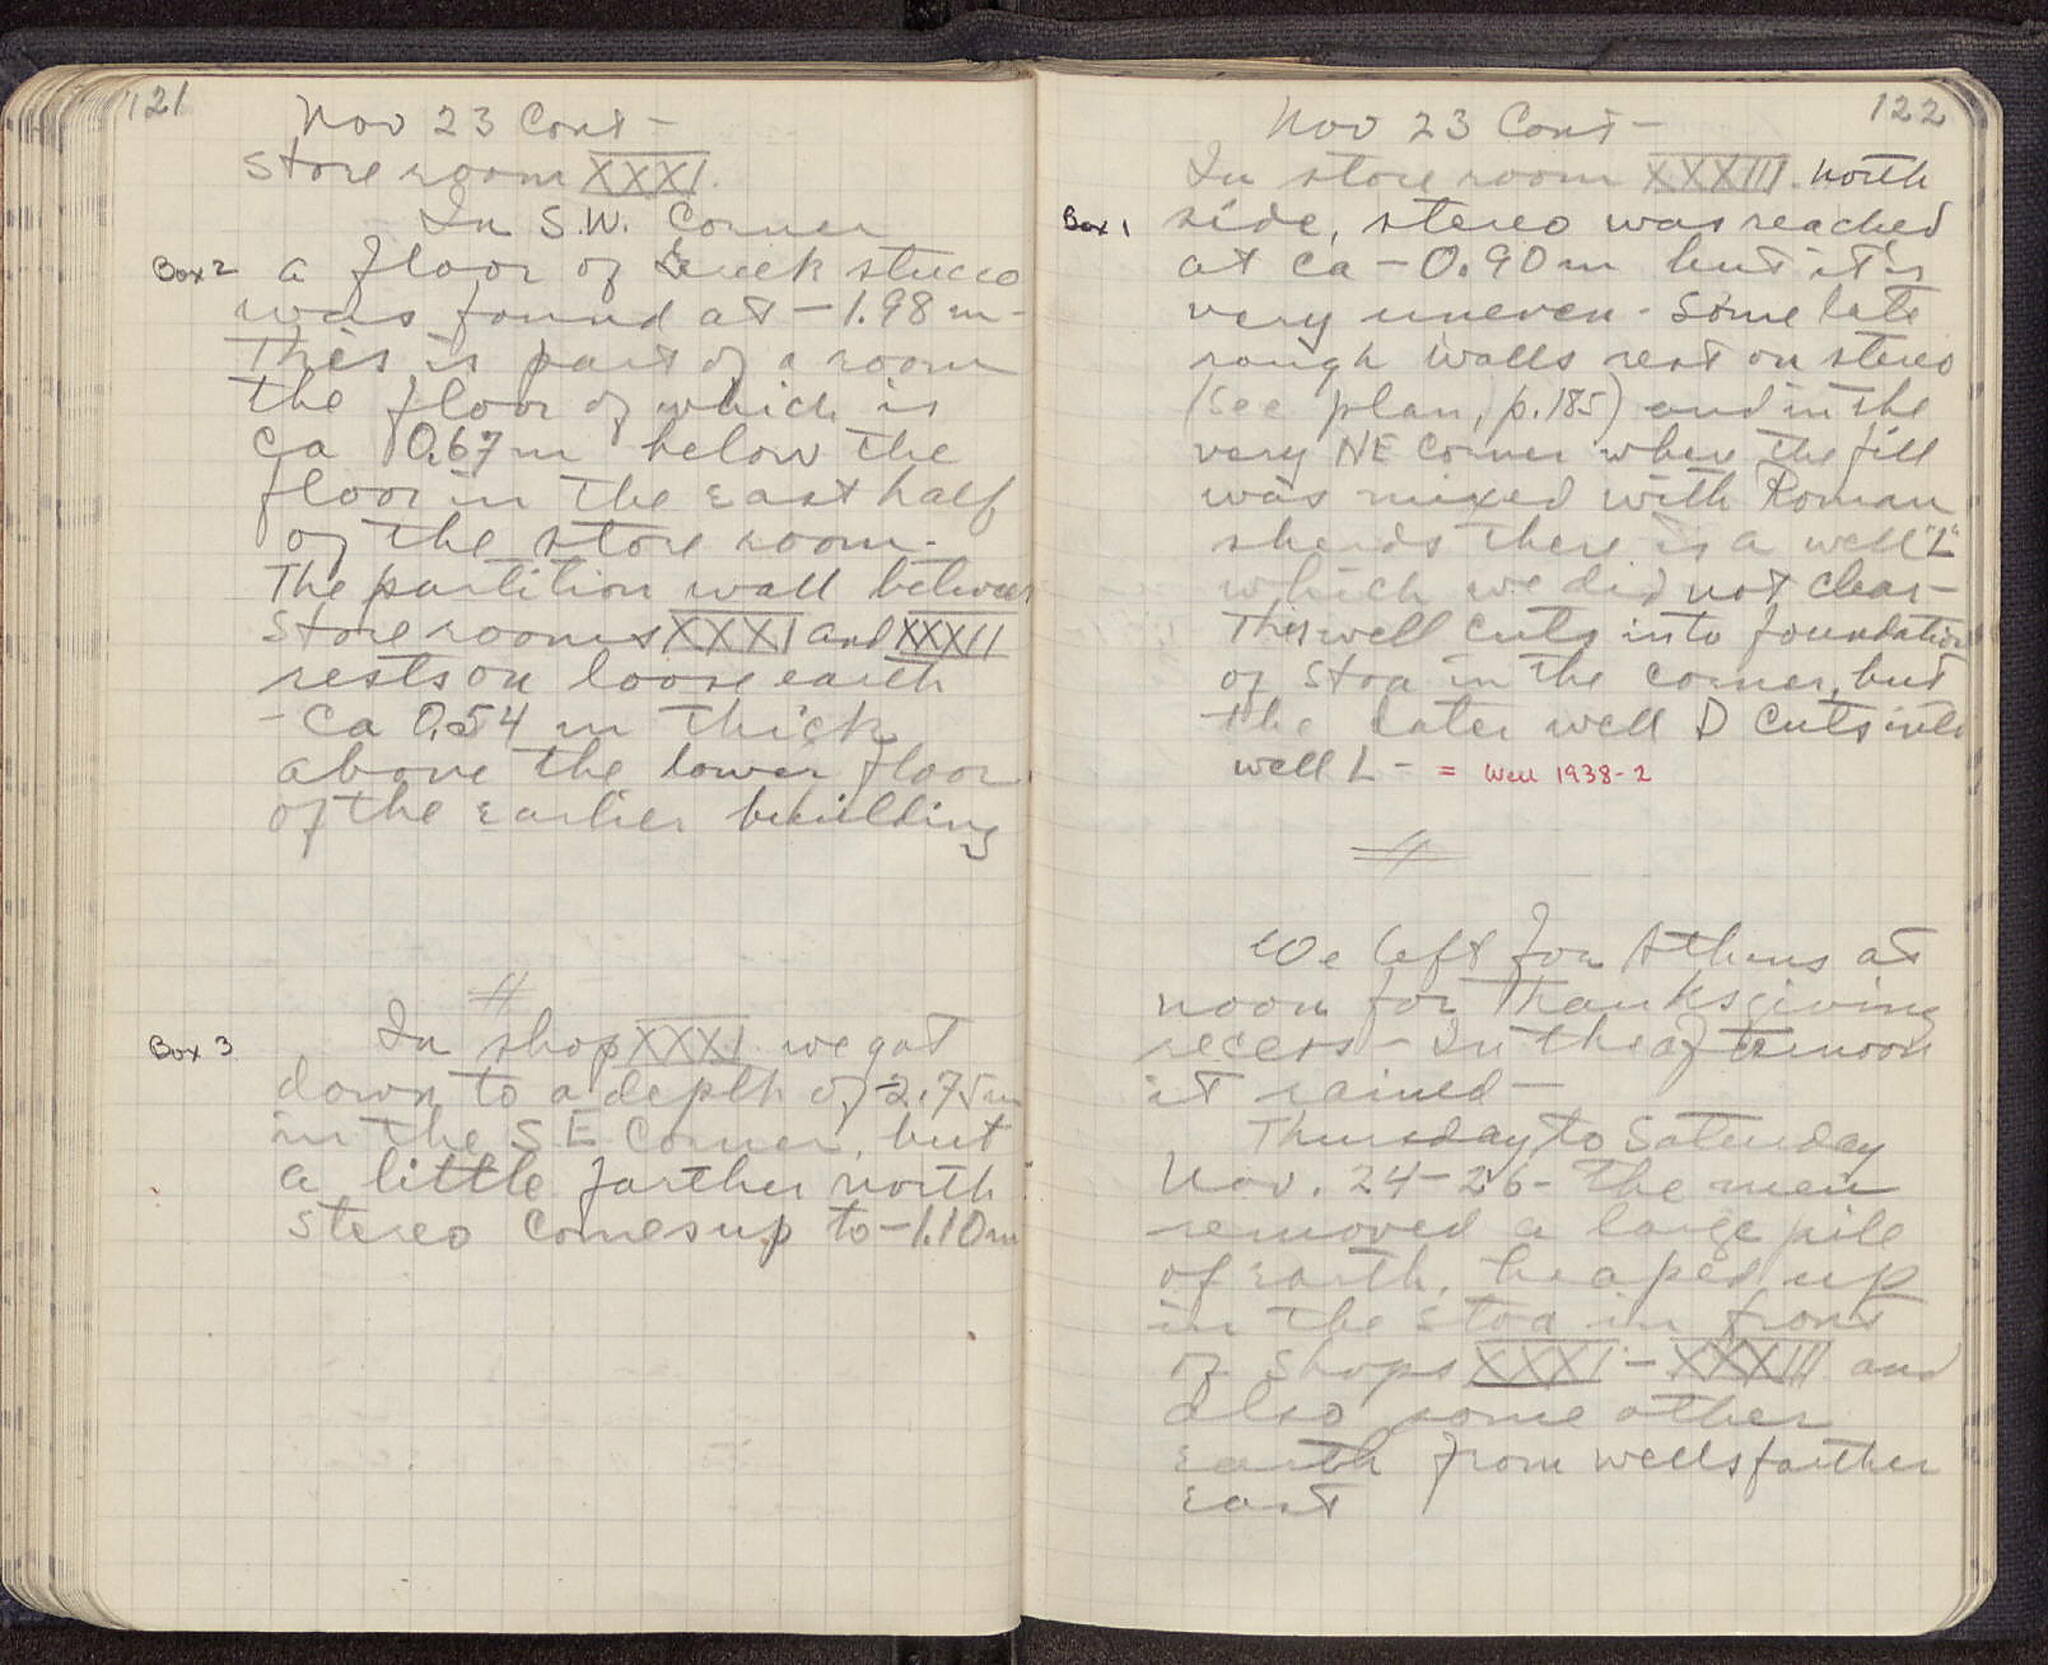 121
Nov 23 Cont -
Store room XXXI.
In S.W. Corner
Box 2 a floor of Greek stucco
was found at - 1.98 m -
This is part of a room
the floor of which is
ca 0.67 m below the
floor in the East half
of the store room.
The partition wall between
Store rooms XXXI and XXXII
rests on loose earth
- ca 0.54 m thick
above the lower floor
of the Earlier building
Box 3 In shop XXXI we got
down to a depth of -2.75 m
in the SE Corner, but
a little farther north
stereo comes up to - 1.10 m
122
Nov 23 Cont -
In store room XXXIII. North
Box 1 side, stereo was reached
at ca - 0.90 m but it is
very uneven. Some late
rough walls rest on stereo
(See plan, p. 185) and in the
very NE Corner where the fill
was mixed with Roman
sherds there is a well "L"
which we did not clear -
This well cuts into foundation
of Stoa in the corner, but
the later well D cuts into
well L - = Well 1938-2
We left for Athens at
noon for Thanksgiving
recess - In the afternoon
it rained -
Thursday to Saturday
Nov. 24-26 - The men
removed a large pile
of earth, heaped up
in the Stoa in front
of Shops XXXI - XXXIII and
also some other
earth from wells farther
East